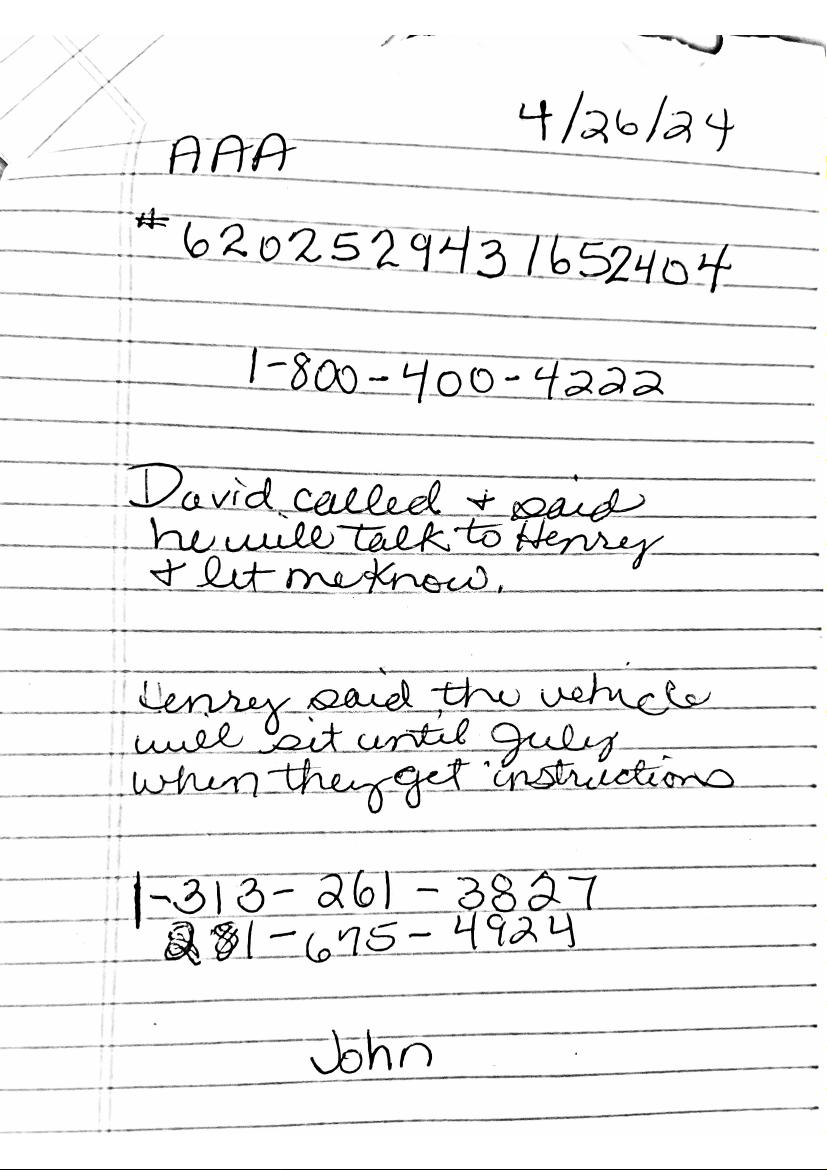 4/26/24
AAA
# 6202529431652404
1-800-400-4222
David called + said
he will talk to Henry
+ let me know.
Henrey said the vehicle
will sit until July
when they get instructions
1-313-261-3827
281-675-4924
John